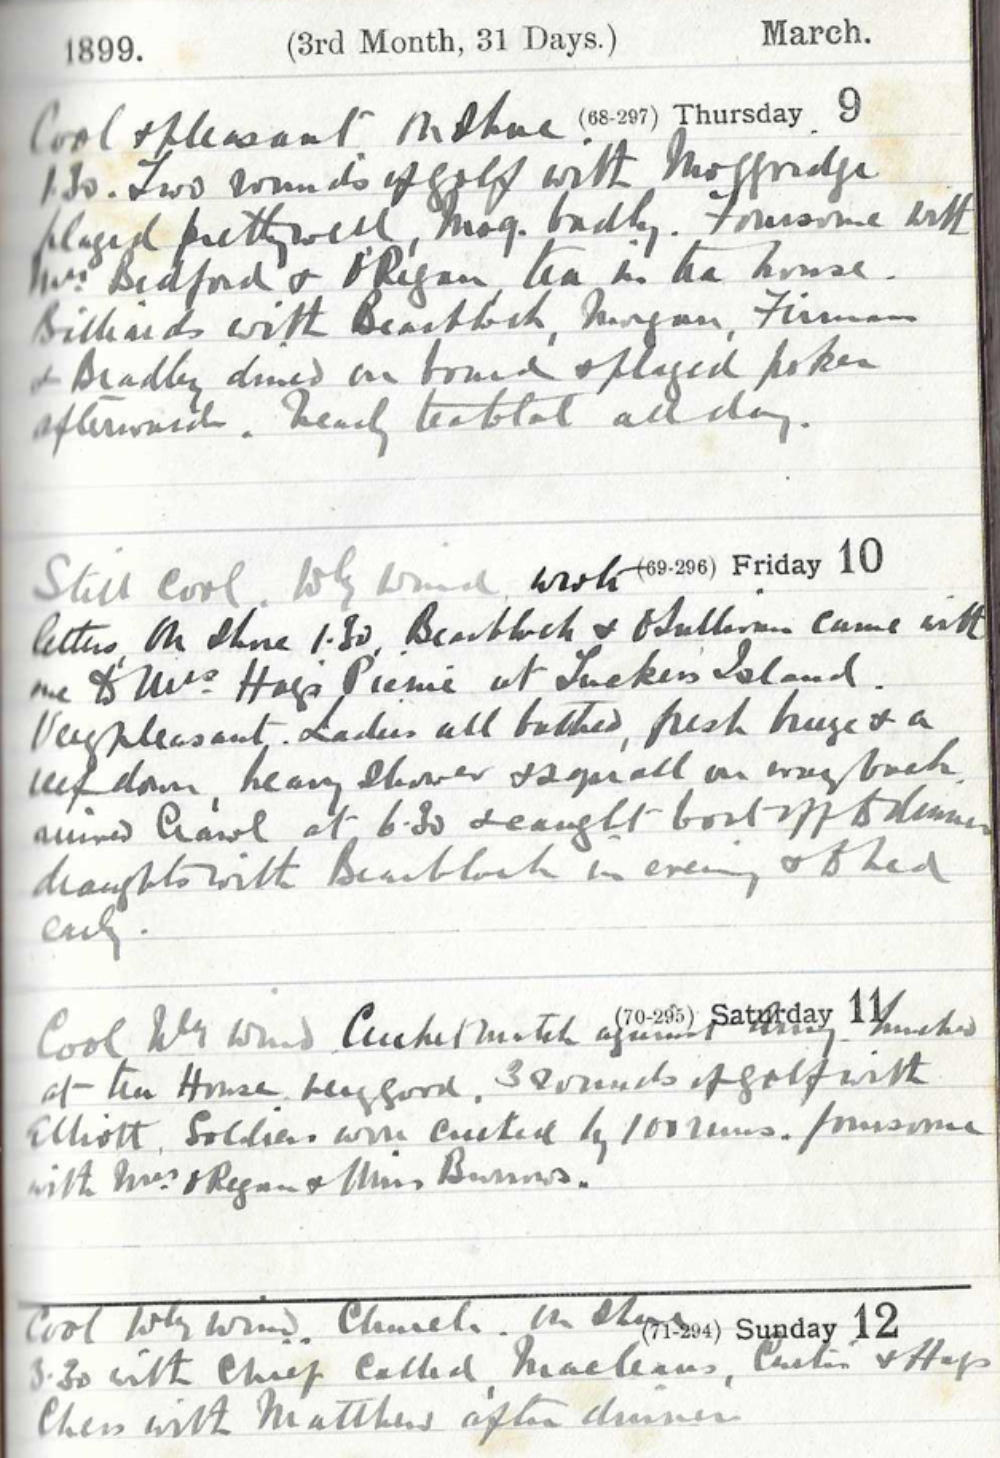 1899. (3rd Month, 31 Days.) March.
(68-297) Thursday 9
Cool & pleasant On Shore
1.30. Two rounds of golf with Moggridge
played pretty well, Mog. badly. Foursome with
Mrs Bedford & O'Regan, tea in tea house.
Billiards with Bearblock, Morgan, Firman
& Bradley dined on board & played poker
afterwards. Nearly teatotal all day.
(69-296) Friday 10
Still cool. Wly wind, wrote
letters, On Shore 1.30, Bearblock & O'Sullivan came with
me to Mrs Hag's Picnic at Tuckers Island.
Very pleasant. Ladies all bathed, fresh breeze & a
reef down, heavy shower & squall on way back,
Crawl at 6.30 & caught boat off to dinner
draughts with Bearblock in evening & to bed
early.
(70-295) Saturday 11
Cool Wly wind Cricket match against Army lunched
at tea House very good. 3 rounds of golf with
Elliott, Soldiers won cricket by 100 runs. foursome
with Mrs O'Regan & Miss Burrows.
(71-294) Sunday 12
Cool Wly wind. Church. On Shore
3.30 with Chief called Macleans, & Hags
Chess with Matthew after dinner